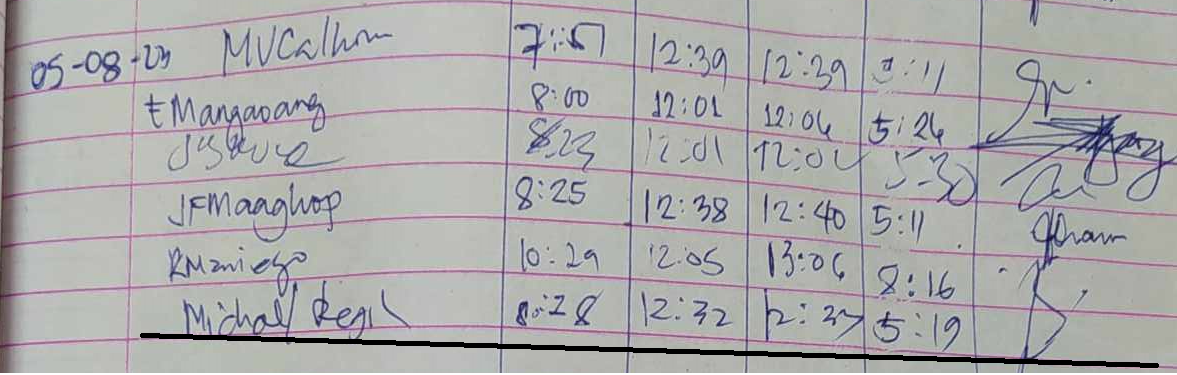 05-08-23 MVCalhom 7:57 12:39 12:39 5:11
EMangaoang 8:00 12:01 12:06 5:26
8:23 12:01 12:02 5-30
JFMaaghop 8:25 12:38 12:40 5:11
RManiego 10:29 12:05 13:06 8:16
Michael Regil 8:28 12:32 12:37 5:19